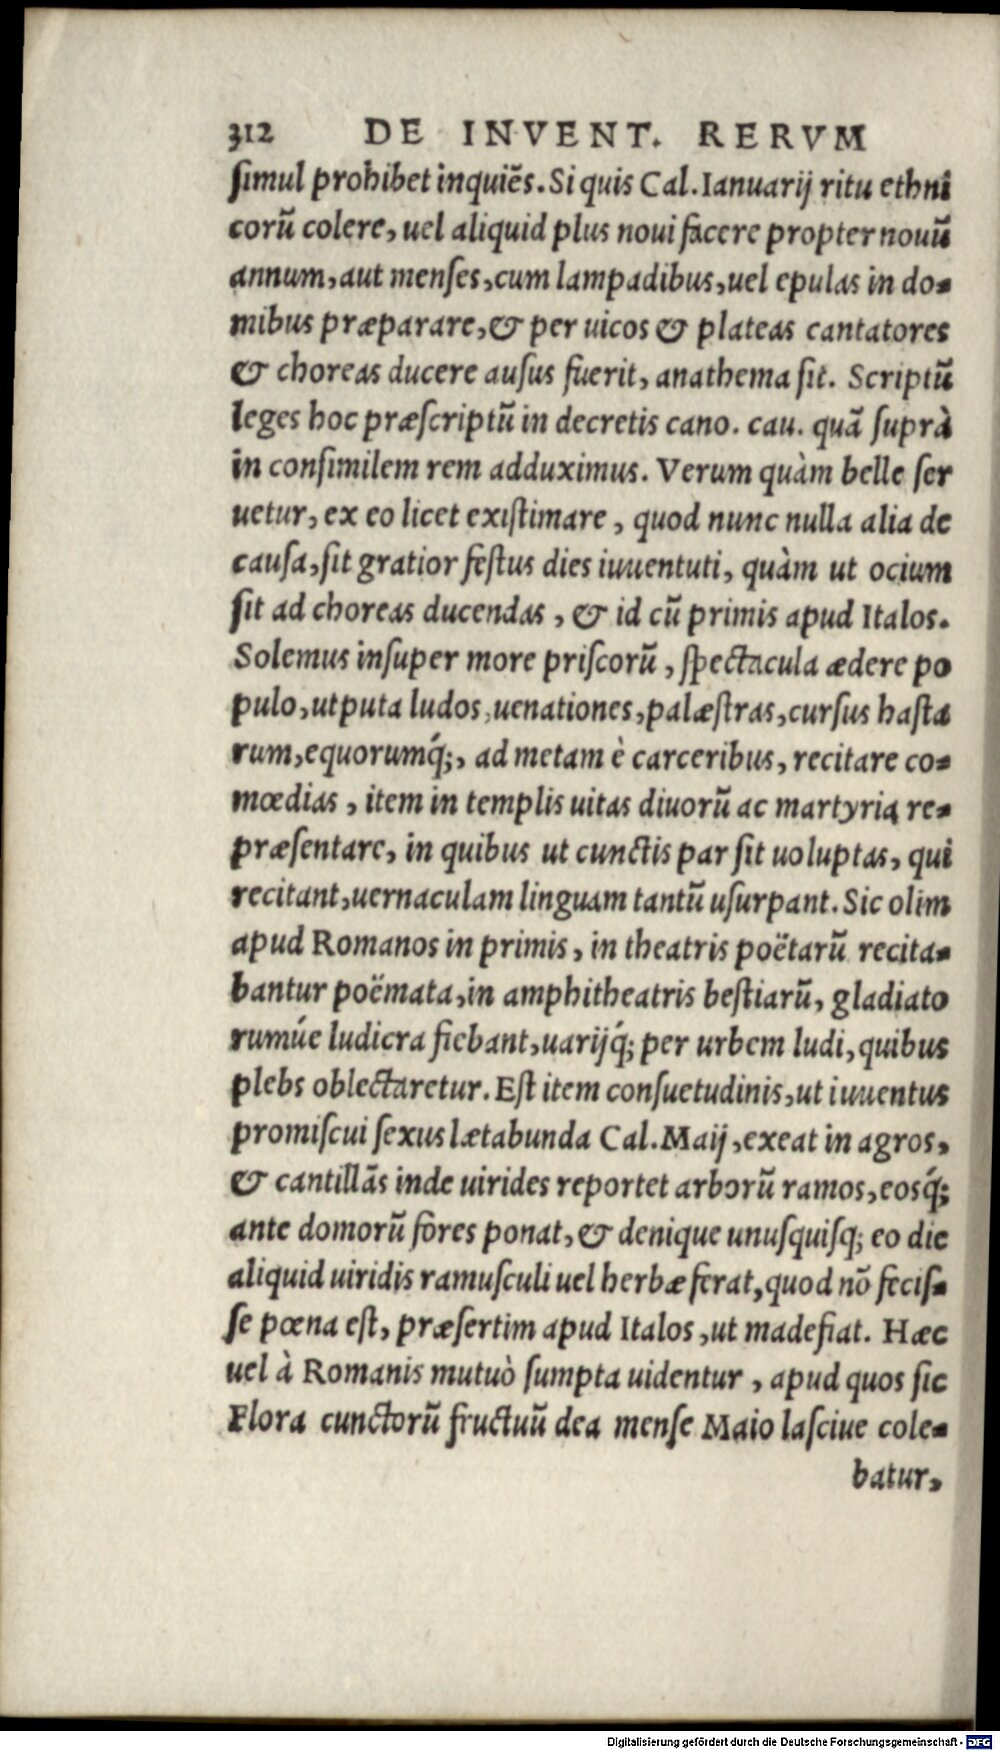 312 DE INVENT. RERVM
ſimul prohibet inquiẽs. Si quis Cal. Ianuarij ritu ethni
corũ colere, uel aliquid plus noui facere propter nouũ
annum, aut menſes, cum lampadibus, uel epulas in do-
mibus præparare, & per uicos & plateas cantatores
& choreas ducere auſus fuerit, anathema ſit. Scriptũ
leges hoc præſcriptũ in decretis cano. cau. quã ſuprà
in conſimilem rem adduximus. Verum quàm belle ſer
uetur, ex eo licet exiſtimare, quod nunc nulla alia de
cauſa, ſit gratior feſtus dies iuuentuti, quàm ut ocium
ſit ad choreas ducendas, & id cũ primis apud Italos.
Solemus inſuper more priſcorũ, ſpectacula ædere po
pulo, utputa ludos, uenationes, palæſtras, curſus haſta
rum, equorumq́;, ad metam è carceribus, recitare co-
mœdias, item in templis uitas diuorũ ac martyria re-
præſentare, in quibus ut cunctis par ſit uoluptas, qui
recitant, uernaculam linguam tantũ uſurpant. Sic olim
apud Romanos in primis, in theatris poëtarũ recita-
bantur poëmata, in amphitheatris beſtiarũ, gladiato
rumúe ludicra fiebant, uarijq́; per urbem ludi, quibus
plebs oblectaretur. Eſt item conſuetudinis, ut iuuentus
promiſcui ſexus lætabunda Cal. Maij, exeat in agros,
& cantillãs inde uirides reportet arborũ ramos, eosq́;
ante domorũ fores ponat, & denique unuſquiſq; eo die
aliquid uiridis ramuſculi uel herbæ ferat, quod nõ feciſ-
ſe pœna eſt, præſertim apud Italos, ut madefiat. Hæc
uel à Romanis mutuò ſumpta uidentur, apud quos ſic
Flora cunctorũ fructuũ dea menſe Maio laſciue cole-
batur,
Digitalisierung gefördert durch die Deutsche Forschungsgemeinschaft - DFG